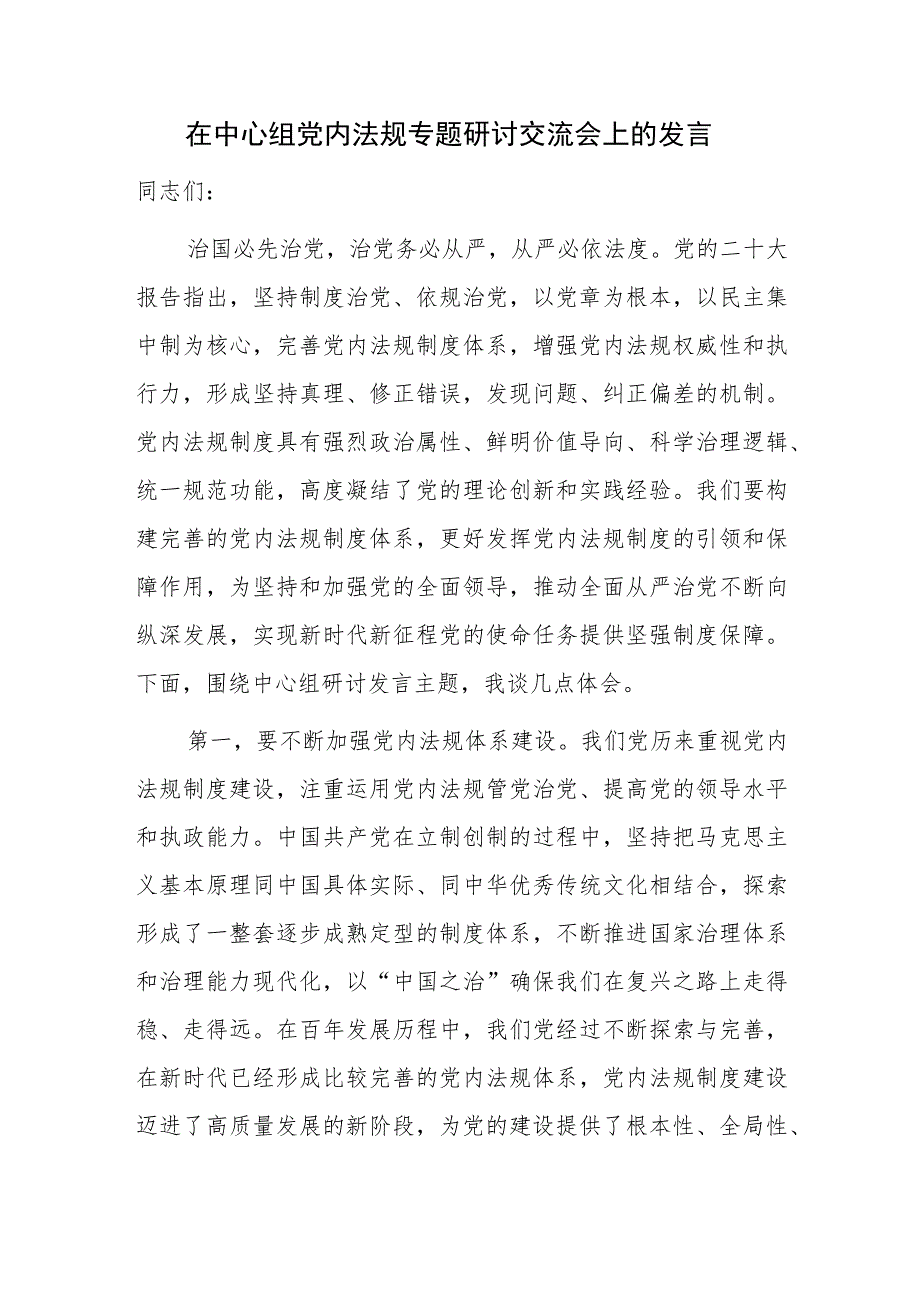 在中心组党内法规专题研讨交流会上的发言
同志们：
治国必先治党，治党务必从严，从严必依法度。党的二十大
报告指出，坚持制度治党、依规治党，以党章为根本，以民主集
中制为核心，完善党内法规制度体系，增强党内法规权威性和执
行力，形成坚持真理、修正错误，发现问题、纠正偏差的机制。
党内法规制度具有强烈政治属性、鲜明价值导向、科学治理逻辑、
统一规范功能，高度凝结了党的理论创新和实践经验。我们要构
建完善的党内法规制度体系，更好发挥党内法规制度的引领和保
障作用，为坚持和加强党的全面领导，推动全面从严治党不断向
纵深发展，实现新时代新征程党的使命任务提供坚强制度保障。
下面，围绕中心组研讨发言主题，我谈几点体会。
第一，要不断加强党内法规体系建设。我们党历来重视党内
法规制度建设，注重运用党内法规管党治党、提高党的领导水平
和执政能力。中国共产党在立制创制的过程中，坚持把马克思主
义基本原理同中国具体实际、同中华优秀传统文化相结合，探索
形成了一整套逐步成熟定型的制度体系，不断推进国家治理体系
和治理能力现代化，以“中国之治”确保我们在复兴之路上走得
稳、走得远。在百年发展历程中，我们党经过不断探索与完善，
在新时代已经形成比较完善的党内法规体系，党内法规制度建设
迈进了高质量发展的新阶段，为党的建设提供了根本性、全局性、